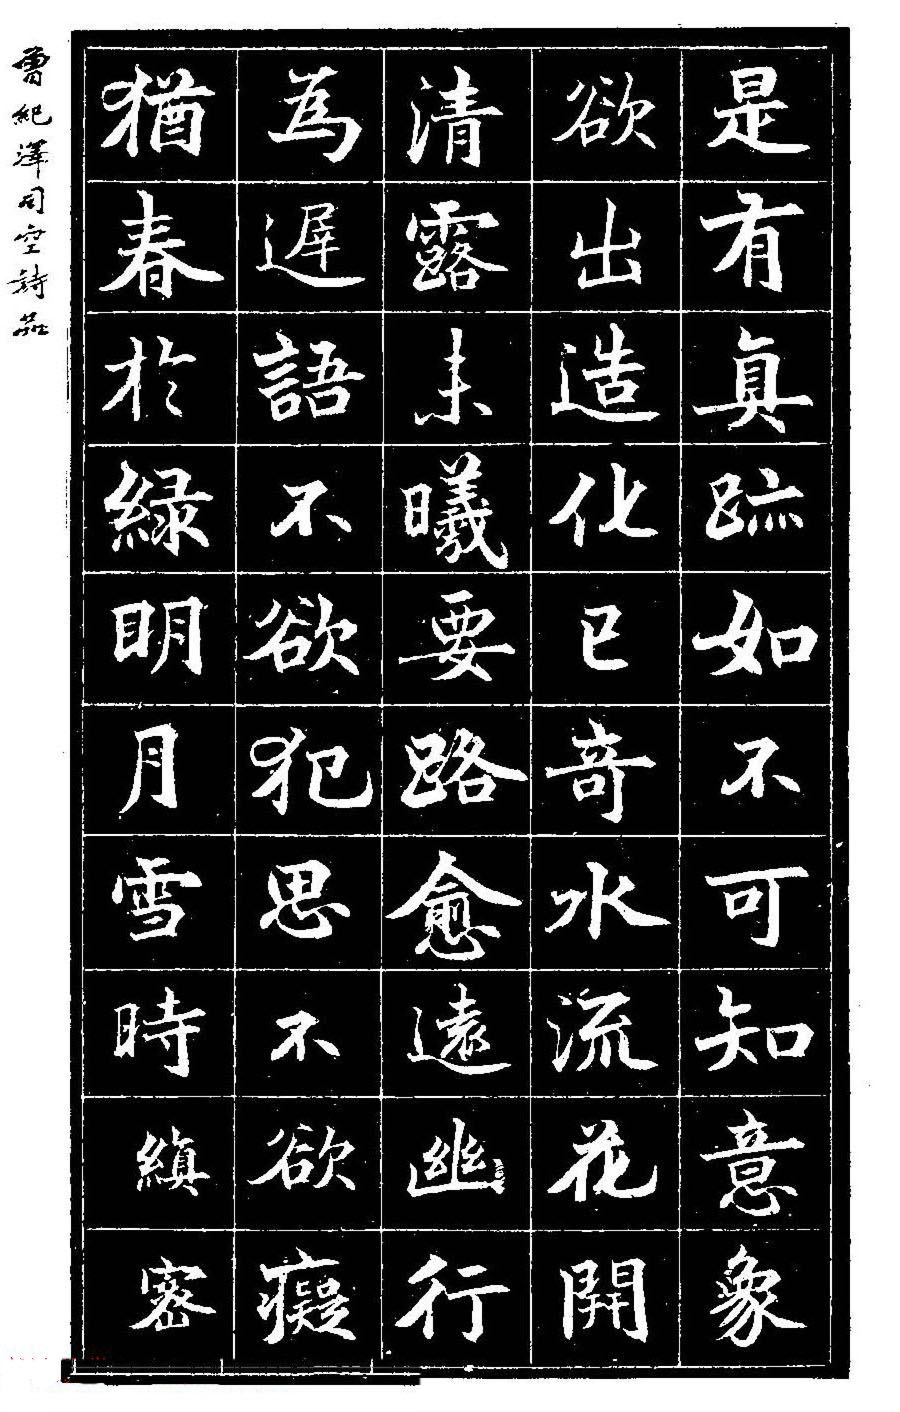 是有真跡如不可知意象
欲出造化已奇水流花開
清露未曦要路愈遠幽行
為遲語不欲犯思不欲癡
猶春於綠明月雪時縝密
曾紀澤司空詩品